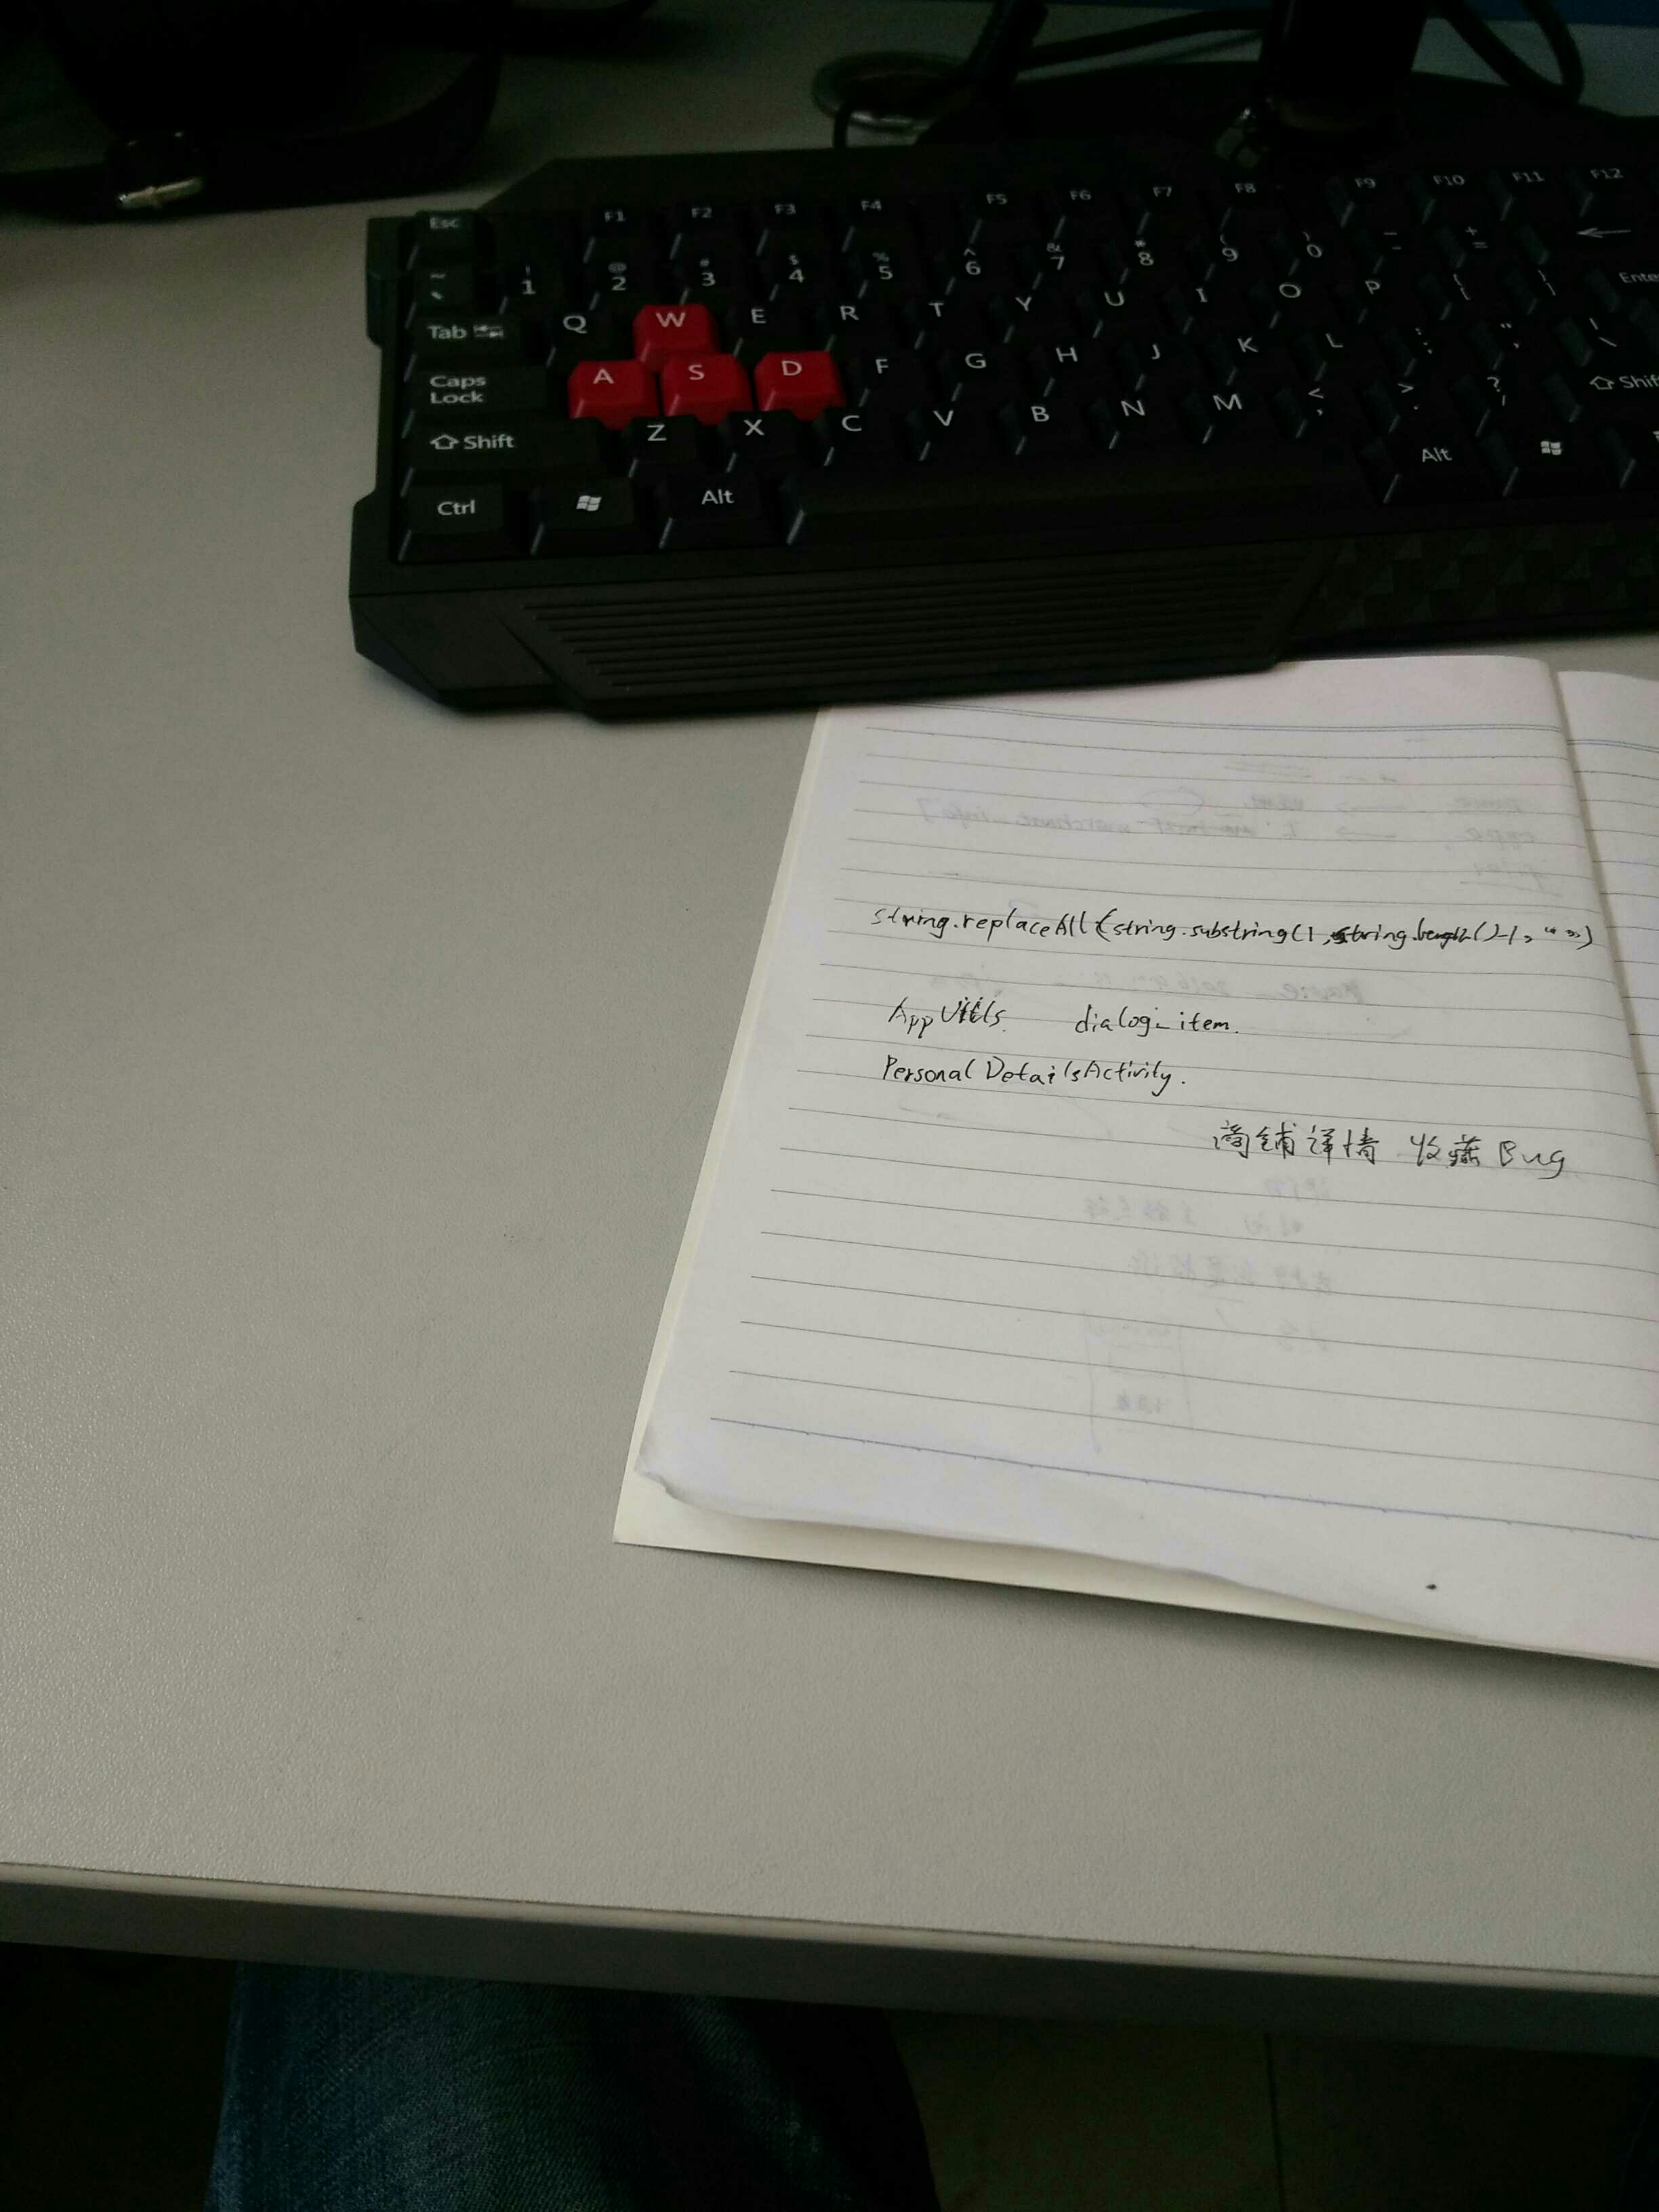 Esc F1 F2 F3 F4 F5 F6 F7 F8 F9 F10 F11 F12
~ ` ! 1 @ 2 # 3 $ 4 % 5 ^ 6 & 7 * 8 ( 9 ) 0 - + = ←
Tab Q W E R T Y U I O P { [ } ] Enter
Caps Lock A S D F G H J K L : ; " ' | \
Shift Z X C V B N M < , > . ? / Shift
Ctrl Alt Alt
string.replaceAll(string.substring(1,string.length()-1,"*")
AppUtils. dialog_item.
PersonalDetailsActivity.
商铺详情 收藏 Bug